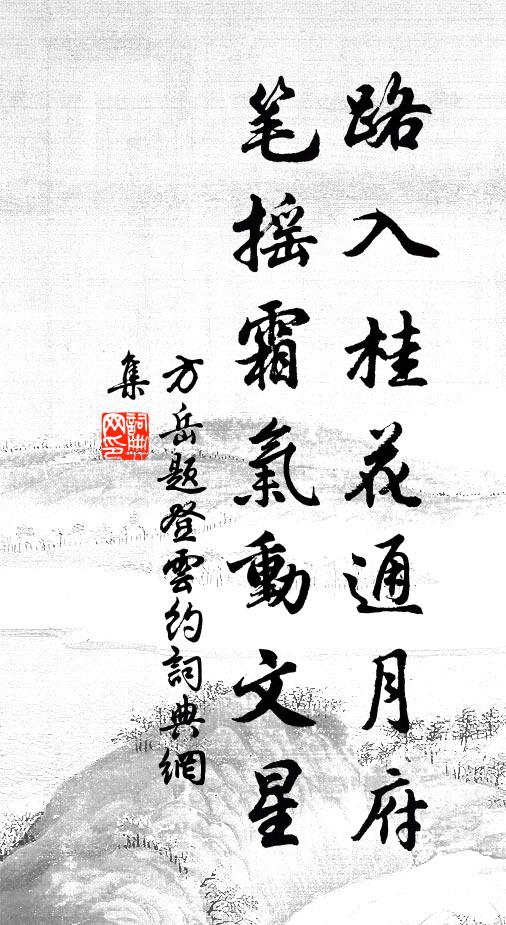 路入桂花通月府
笔摇霜氣動文星
方岳題登雲約詞典網
集
詞典
网印